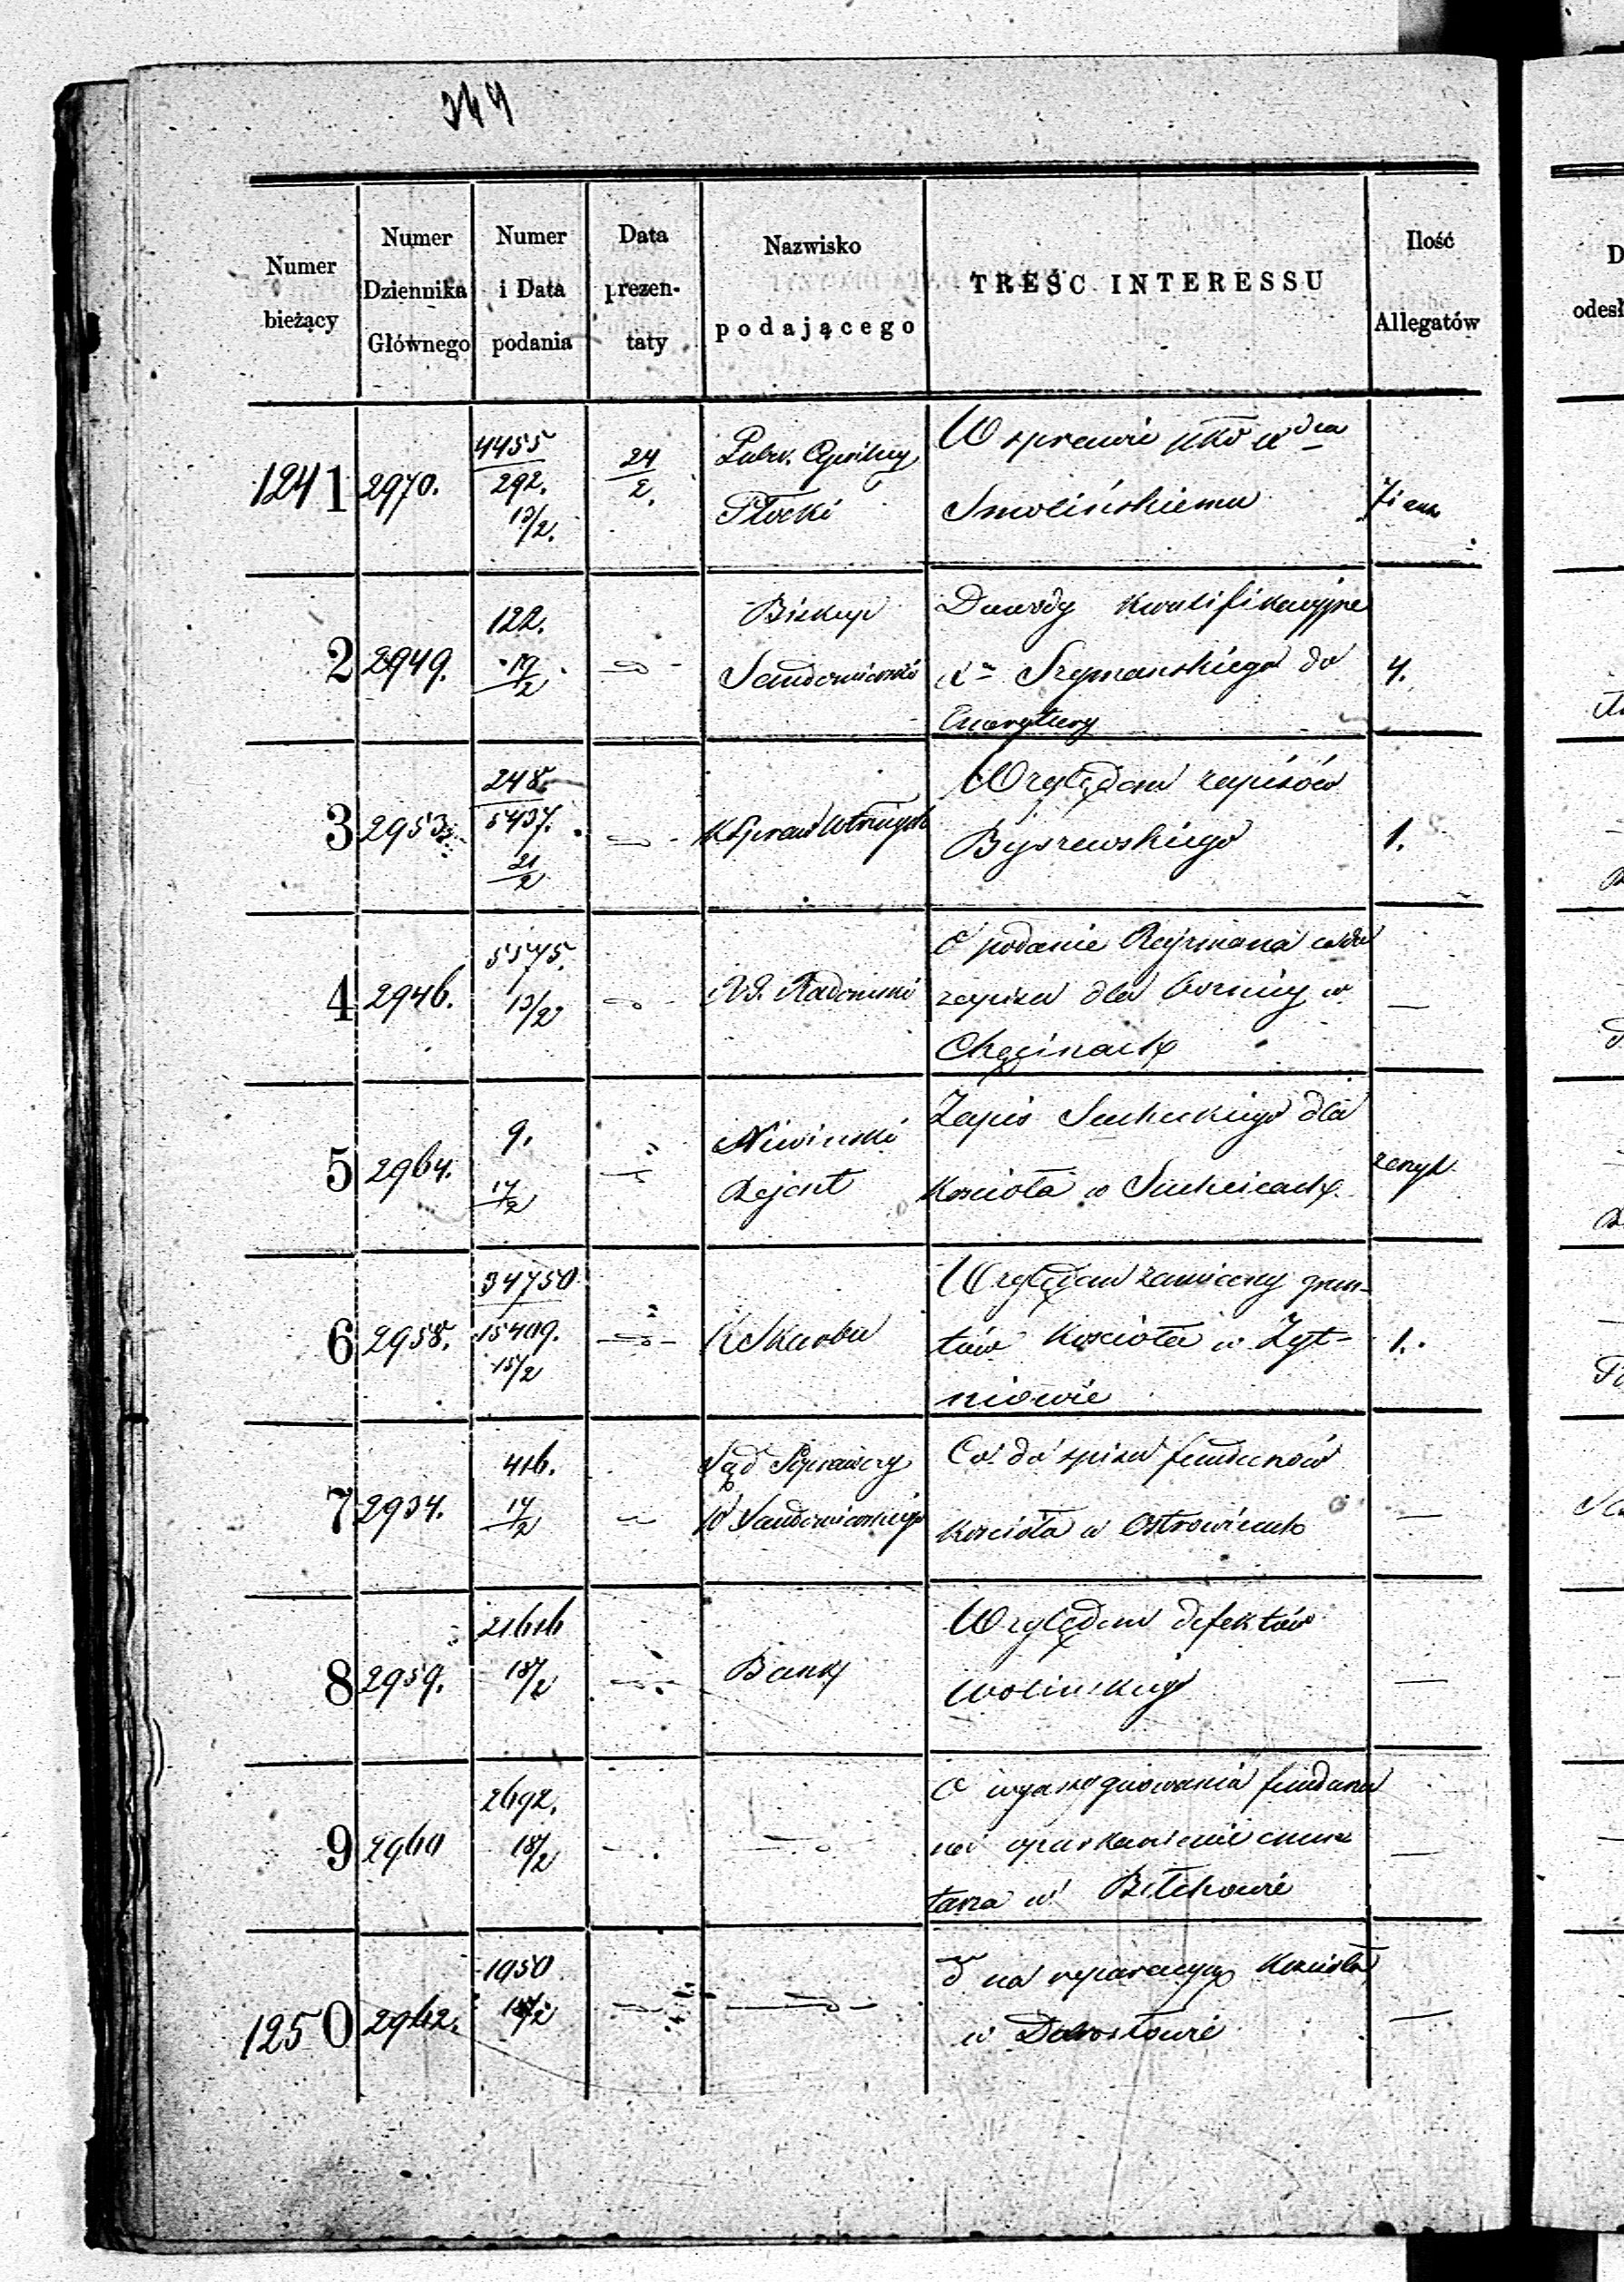 344
Numer bieżący
Numer Dziennika Głównego
Numer i Data podania
Data prezentaty
Nazwisko podającego
TREŚC INTERESSU
Ilość Allegatów
1241 2970. 4455 292. 13/2. 24/2. Płocki
W sprawie
Smolińskiemu
2 2949. 122. 19/2 Biskup
Sandomierski
Dowody kwalifikacyjne
Xa Szymanskiego do
Emerytury
4.
3 2953. 248. 5437. 21/2
Względem zapisów
Byszewskiego
1.
4 2946. 5575. 13/2 R.G. Radomski
O podanie Rejzmana
zapisu dla w
Chęcinach
—
5 2964. 9. 17/2 Niwinski
Rejent
Zapis Suchckiego dla
Kościoła w
6 2958. 34750. 15409. 15/2 K Skarbu
Względem zamiany grun-
tów Kościoła w Żyt-
niowie
1.
7 2934. 416. 17/2 Sąd Poprawczy
W Sandomierskiego
Co do spisu funduszów
Kościoła w Ostrowieach
—
8 2959. 21616 18/2 Bank
Względem defektów
Wolinskiego
—
9 2960 2692. 18/2
O wyassygnowania fundusu
na oparkanienie cmen
tarza w Bełchowie
—
1250 2962. 1950 18/2
d na reparacyą Kościoła
w
—
D
odes